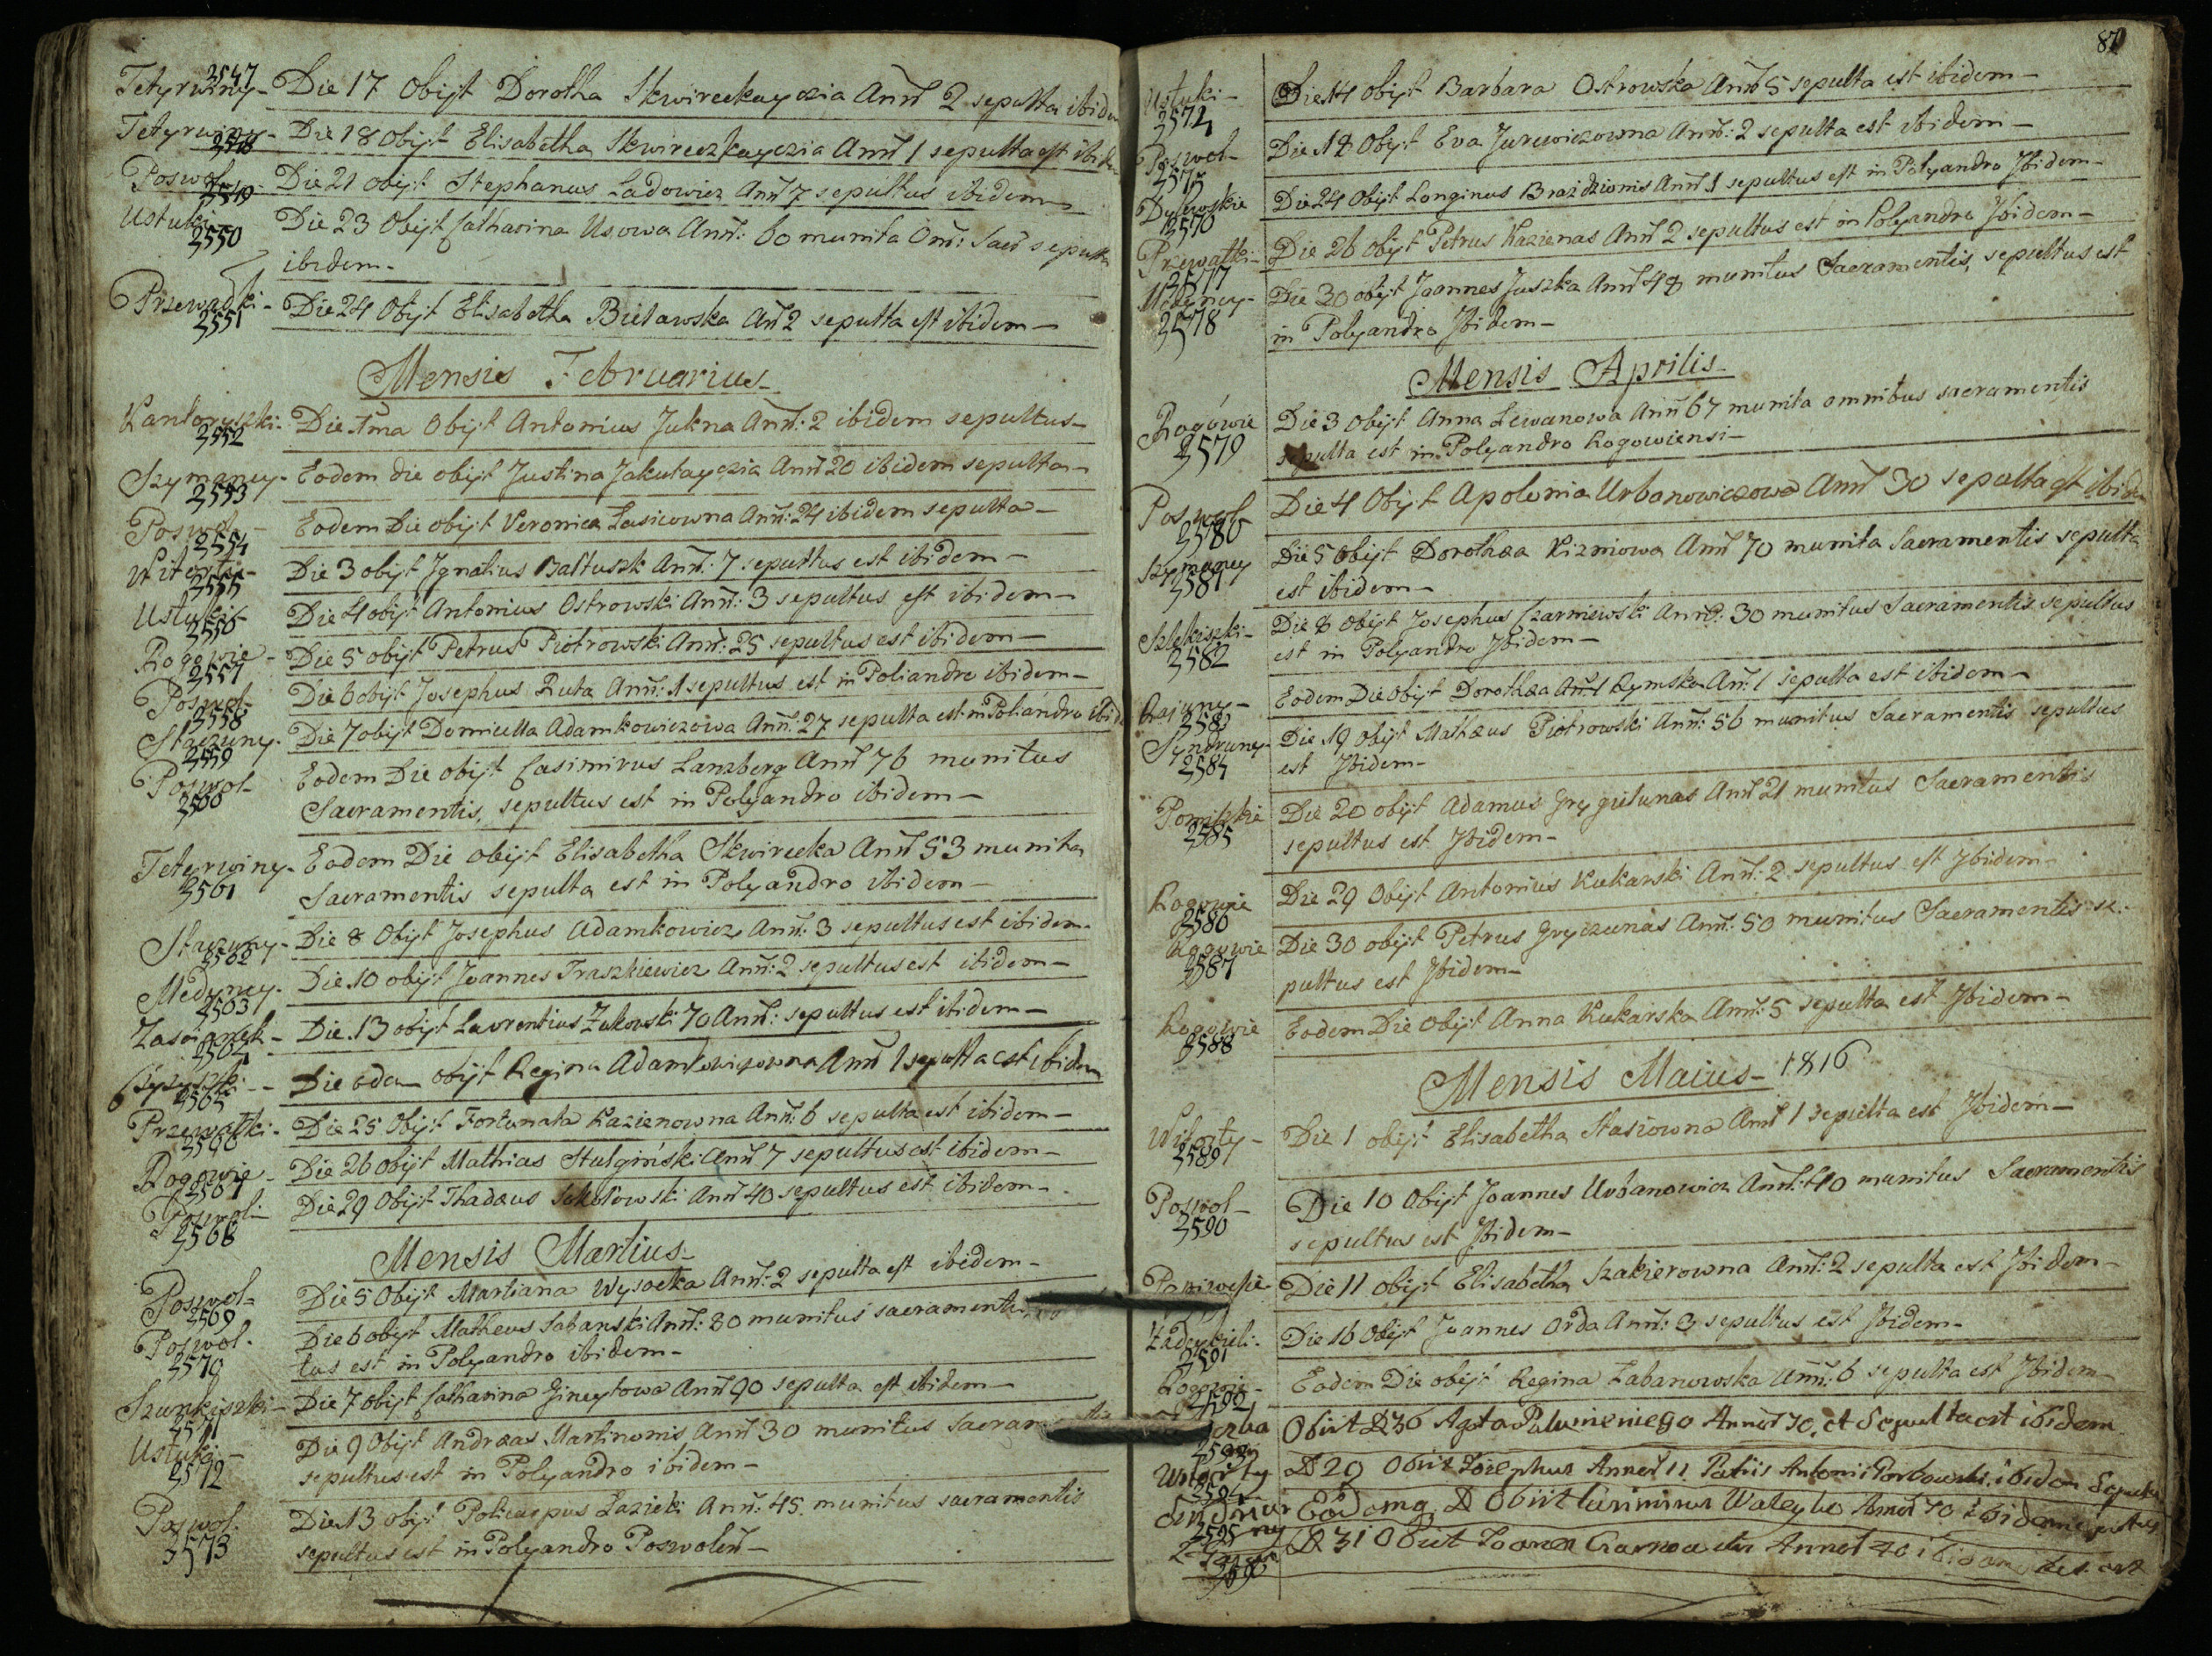 Tetyrwiny- Die 17 Obijt Dorotha Skwireckayczia Ann̄ 2 sepulta ibidem
2547
Tetyrwiny- Die 18 Obijt Elisabetha Skwireczkayczia Ann̄ 1 sepulta est ibidem
2548
Poswol- Die 21 obijt Stephanus Ladowicz Ann̄ 7 sepultus ibidem
2549
Ustuki Die 23 Obijt Catharina Usowa Ann̄: 60 munita Om̄: Sacr̄ sepulta
2550
ibidem-
Przewałki- Die 24 Obijt Elisabetha Bielawska Ann̄ 2 sepulta est ibidem-
2551
Mensis Februarius-
Die 1ma Obijt Antonius Jukna Ann̄: 2 ibidem sepultus-
2552
Szymaney- Eodem die obijt Justina Jakutayczia Ann̄ 20 ibidem sepulta-
2553
Poswol- Eodem Die obijt Veronica Lasicowna Ann̄: 24 ibidem sepulta-
2554
Witorty- Die 3 obijt Ignatius Baltuszk Ann̄: 7 sepultus est ibidem-
2555
Ustuki- Die 4 obijt Antonius Ostrowski Ann̄: 3 sepultus est ibidem-
2556
Rogowie- Die 5 obijt Petrus Piotrowski Ann̄: 25 sepultus est ibidem-
2557
Poswol- Die 6 obijt Josephus Ruta Ann̄: 1 sepultus est in Poliandro ibidem-
2558
Staczuny- Die 7 obijt Domicella Adamkowiczowa Ann̄: 27 sepulta est in Poliandro ibid
2559
Poswol- Eodem Die obijt Casimirus Lanzberg Ann̄ 76 munitus
2560
Sacramentis, sepultus est in Polyandro ibidem-
Tetyrwiny- Eodem Die obijt Elisabetha Skwirecka Ann̄ 53 munita
2561
Sacramentis sepulta est in Polyandro ibidem-
Staczuny- Die 8 Obijt Josephus Adamkowicz Ann̄: 3 sepultus est ibidem-
2562
Medyney- Die 10 obijt Joannes Traszkiewicz Ann̄: 2 sepultus est ibidem-
2563
Zascianek- Die 13 obijt Laurentius Zukowski 70 Ann̄: sepultus est ibidem-
2564
Die eadem obijt Regina Adamkowiczowna Ann̄ 1 sepulta est ibidem
2565
Przewałki- Die 25 Obijt Fortunata Kazienowna Ann̄: 6 sepulta est ibidem-
2566
Rogowie- Die 26 obijt Mathias Stulgiński Ann̄ 7 sepultus est ibidem-
2567
Poswol- Die 29 Obijt Thadæus Sokołowski Ann̄ 40 sepultus est ibidem-
2568
Mensis Martius-
Poswol- Die 5 Obijt Martiana Wysocka Ann̄: 2 sepulta est ibidem-
2569
Poswol- Die 6 obijt Matheus Sabanski Ann̄: 80 munitus sacramentis,
2570
tus est in Polyandro ibidem-
Szunkiszki- Die 7 obijt Catharina Gineytowa Ann̄ 90 sepulta est ibidem-
2571
Ustuki- Die 9 Obijt Andræas Martinonis Ann̄ 30 munitus Sacramentis
2572
sepultus est in Polyandro ibidem-
Poswol- Die 13 obijt Policarpus Lazicki Ann̄: 45 munitus sacramentis
2573
sepultus est in Polyandro Poswoleń-
87
Ustuki- Die 14 obijt Barbara Ostrowska Ann̄ 5 sepulta est ibidem-
2574
Poswol- Die 18 Obijt Eva Jurewiczowna Ann̄: 2 sepulta est ibidem-
2575
Die 24 Obijt Longinus Brazdzionis Ann̄ 1 sepultus est in Polyandro Ibidem-
2576
Przewałki- Die 26 Obijt Petrus Kazienas Ann̄ 2 sepultus est in Polyandro Ibidem-
2577
Medyney- Die 30 obijt Joannes Juszka Ann̄ 48 munitus Sacramentis, sepultus est
2578
in Polyandro Ibidem-
Mensis Aprilis-
Rogowie Die 3 Obijt Anna Lewanowa Ann̄ 67 munita omnibus sacramentis
2579
sepulta est in Polyandro Rogowiensi-
Poswol- Die 4 Obijt Apolonia Urbanowiczowa Ann̄ 30 sepulta est ibidem
2580
Szymaney Die 5 Obijt Dorothæa Kizniowa Ann̄ 70 munita Sacramentis sepulta
2581
est ibidem-
Die 8 Obijt Josephus Czarniewski Ann̄: 30 munitus Sacramentis sepultus
2582
est in Polyandro Ibidem-
Rajuny- Eodem Die Obijt Dorothæa Rymska Ann̄: 1 sepulta est ibidem-
2583
Syndruny- Die 19 Obijt Mathæus Piotrowski Ann̄: 56 munitus Sacramentis sepultus
2584
est Ibidem-
Die 20 obijt Adamus Grygielunas Ann̄ 21 munitus Sacramentis
2585
sepultus est Ibidem-
Rogowie Die 29 Obijt Antonius Kukarski Ann̄: 2 sepultus est Ibidem-
2586
Rogowie Die 30 obijt Petrus Gryczunas Ann̄: 50 munitus Sacramentis se:-
2587
pultus est Ibidem-
Rogowie Eodem Die Obijt Anna Kukarska Ann̄: 5 sepulta est Ibidem-
2588
Mensis Maius- 1816
Witorty- Die 1 obijt Elisabetha Stasiowna Ann̄ 1 sepulta est Ibidem-
2589
Poswol- Die 10 Obijt Joannes Urbanowicz Ann̄: 40 munitus Sacramentis
2590
sepultus est Ibidem-
Die 11 obijt Elisabetha Szakierowna Ann̄: 2 sepulta est Ibidem-
Die 16 Obijt Joannes Orda Ann̄: 3 sepultus est Ibidem-
2591
Rogowie- Eodem Die obijt Regina Labanowska Ann̄: 6 sepulta est Ibidem-
2592
Obiit D 30 Agata Annor̄ 70, et Sepulta est ibidem
2593
Witorty D 29 Obiit Josephus Annor̄ 11 Patris Antonii ibidem
2594
Eademq. D Obiit Casimirus Annor̄ 70 ibidem
2595
D 31 Obiit Joannes Annor̄ 40 ibidem
2596